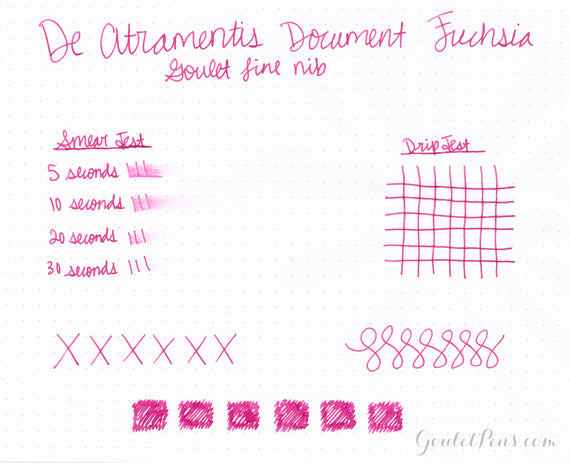 De Atramentis Document Fuchsia
Goulet fine nib
Smear Test
5 seconds
10 seconds
20 seconds
30 seconds
Drip Test
X X X X X X
GouletPens.com